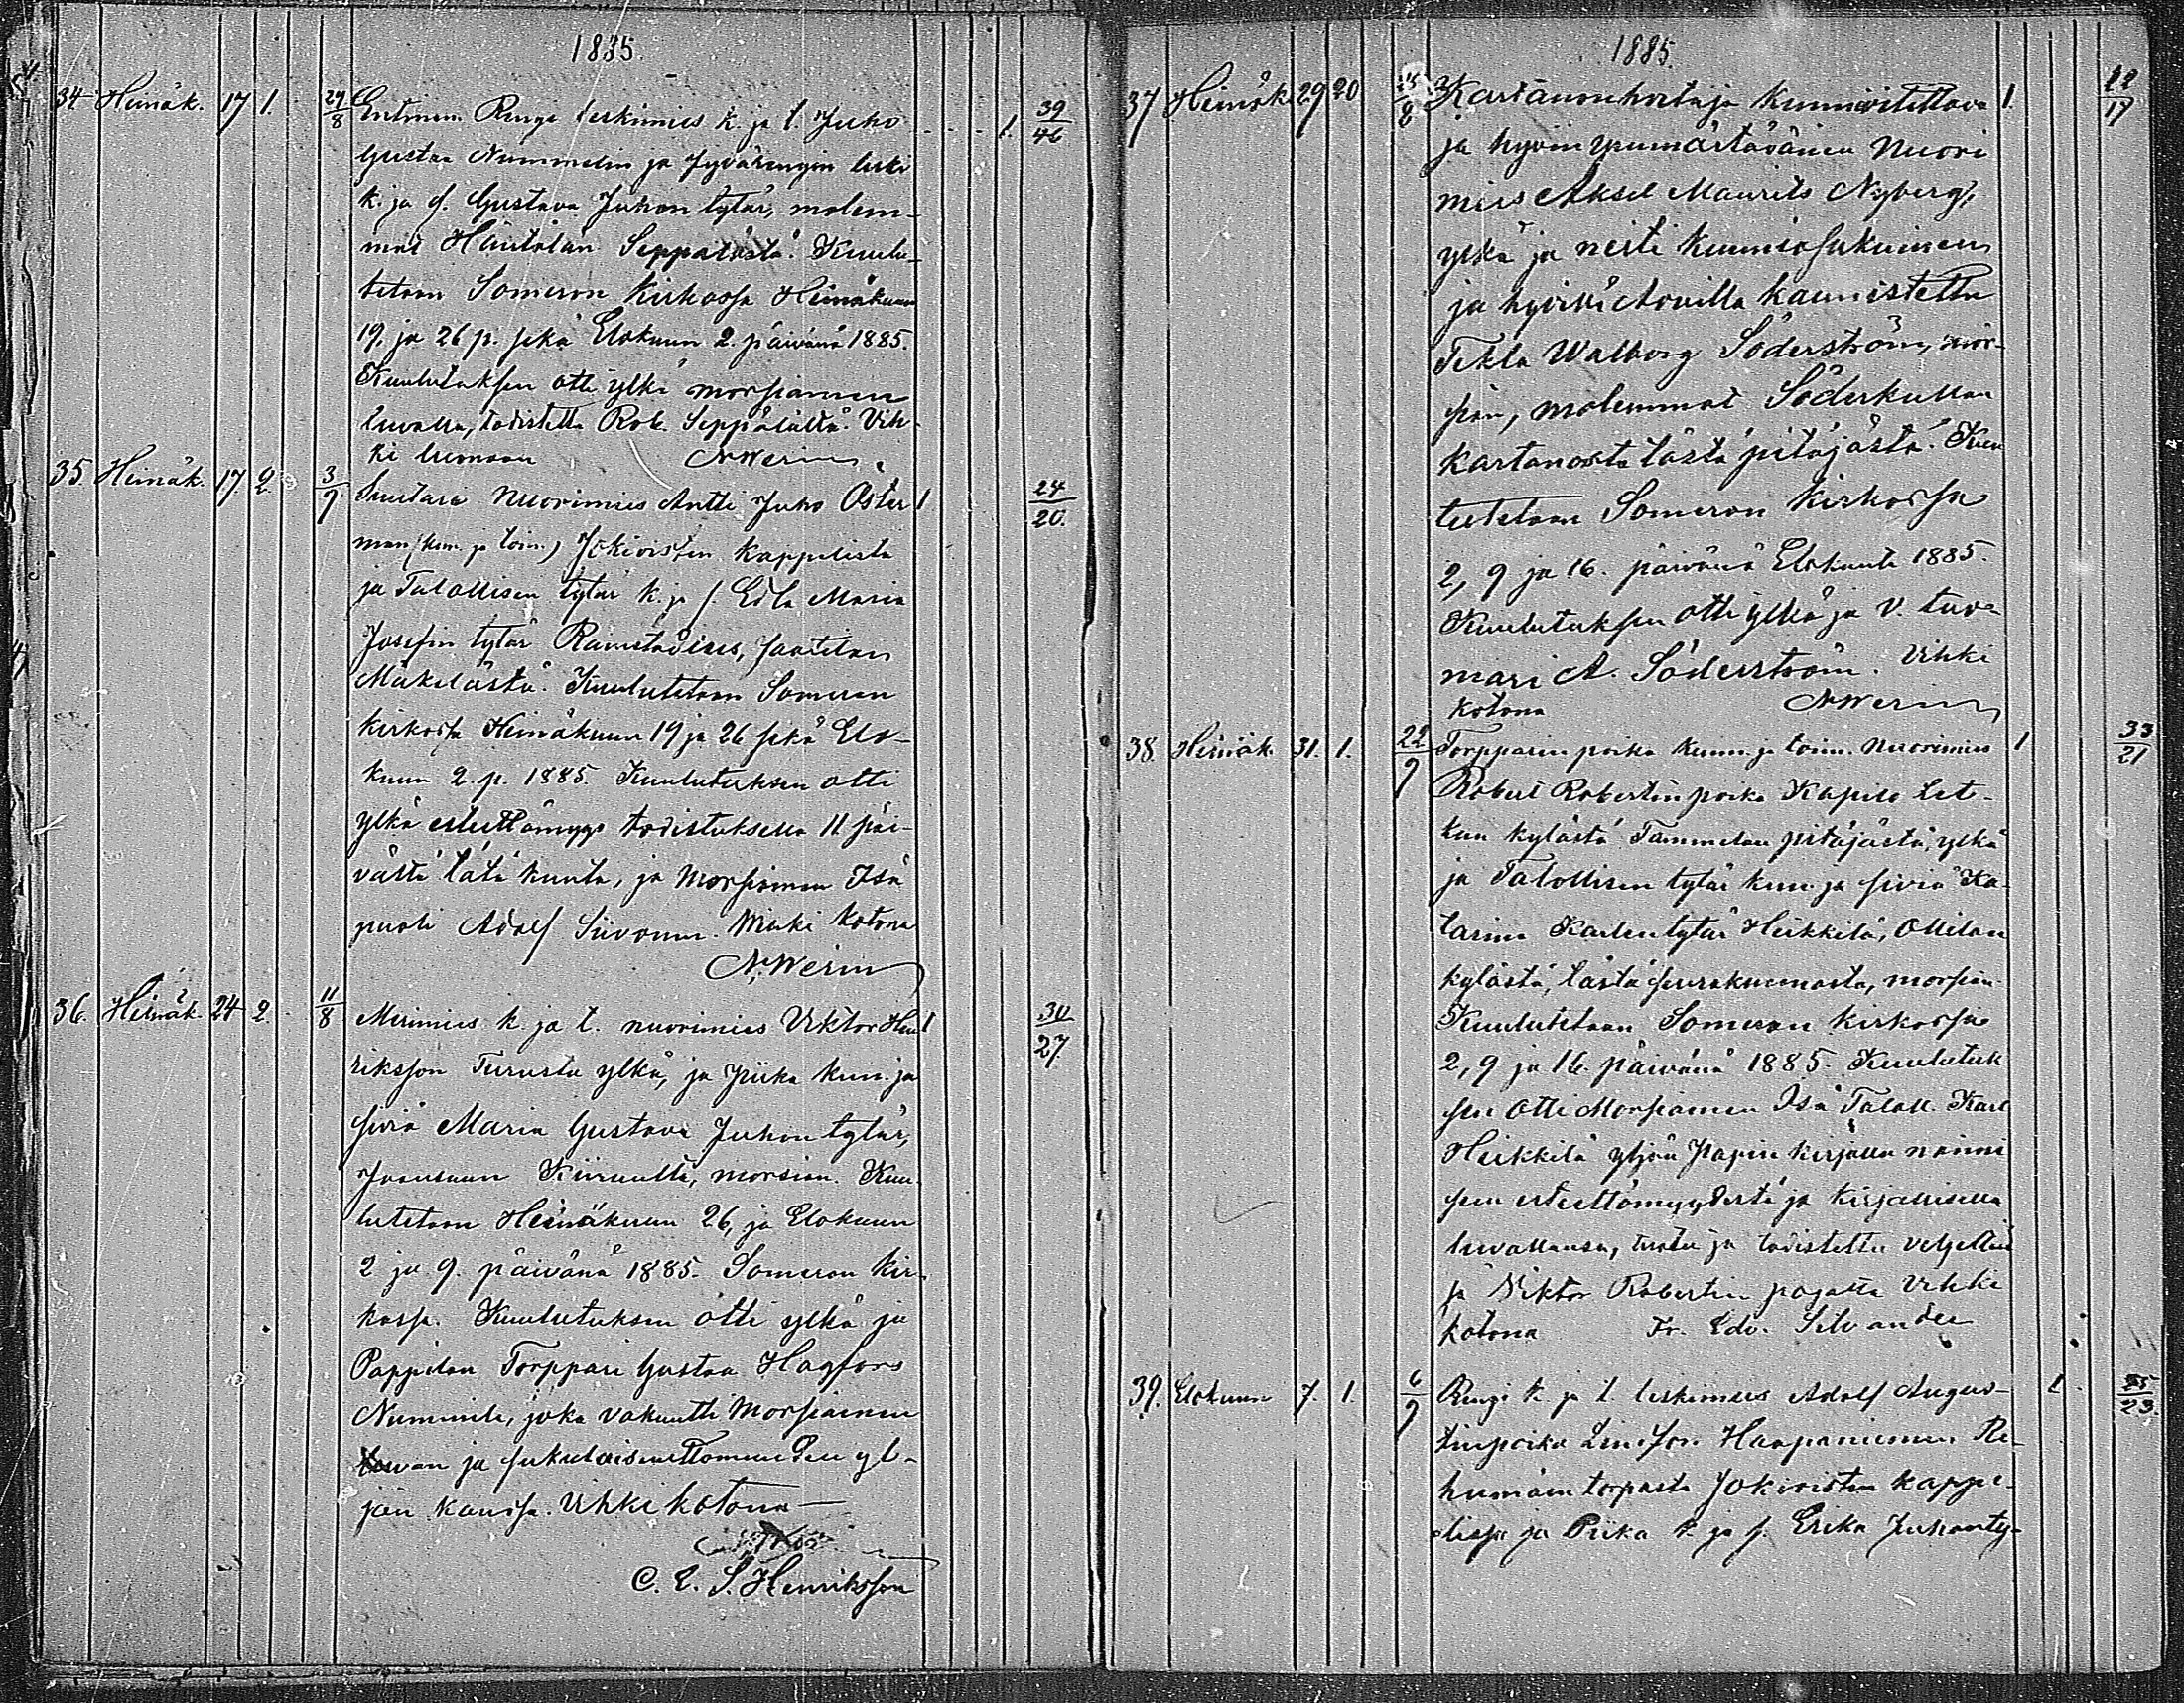 1885.
34 Heinäk. 17 1. 29/8 Entinen Renge leskimies k. ja t. Juho 1. 39/46
Gustaa Nummelin ja Jyvärengin leski
k. ja s. Gustava Juhon tytär, molem-
mat Häntälän Seppälästä. Kuulu-
tetaan Someron kirkossa Heinäkuun
19, ja 26 p. sekä Elokuun 2. päivänä 1885.
Kuulutuksen otti ylkä morsiamen
luvalla, todistettu Rob. Seppälältä. Vih-
ki luonaan A Werin
35. Heinäk. 17. 2. 3/9 Suutari Nuorimies Antti Juho Öster 1 24/20.
man (kun. ja toim.) Jokioisten kappelista
ja Talollisen tytär k. ja s. Edla Maria
Josefin tytär Ramstadius,
Mäkelästä. Kuulutetaan Someron
kirkossa Heinäkuun 19 ja 26 sekä Elo-
kuun 2. p. 1885. Kuulutuksen otti
ylkä esteettömyys todistuksella 11 päi-
västä tätä kuuta, ja Morsiamen Isä
puoli Adolf Siivonen. Wihki kotona
A. Werin
36. Heinäk. 24 2. 11/8 Merimies k. ja t. nuorimies Viktor Hen 1 30/27
riksson Turusta ylkä, ja Piika kun. ja
siviä Maria Gustava Juhon tytär,
Kiiruulta, morsian. Kuu-
lutetaan Heinäkuun 26, ja Elokuun
2 ja 9. päivänä 1885. Someron kir-
kossa. Kuulutuksen otti ylkä ja
Pappilan Torppari Gustaa Hagfors
Nummilta, joka vakuutti Morsiamen
luvan ja sukulaisuuttomuuden yl-
jän kanssa. Vihki kotona —
C. E. S. Henriksson
1885.
37 Heinäk. 29 20 Kartanonhoitaja kunnioitettava 1. 22/17
ja hyvin ymmärtäväinen Nuori
mies Aksel Maurits Nyberg,
ylkä ja neiti kunniasukuinen
ja hyvillä Avuilla kaunistettu
Tekla Walborg Söderström, mor-
sian, molemmat Söderkullan
kartanosta tästä pitäjästä. Kuu
lutetaan Someron kirkossa
2, 9 ja 16. päivänä Elokuuta 1885.
Kuulutuksen otti ylkä ja v. tuo-
mari A. Söderström. Vihki
kotona A Werin
38. Heinäk. 31. 1. 22/9 Torpparin poika kunn. ja toim. nuorimies 1 33/21
Robert Robertin poika Kapilo Let-
kun kylästä Tammelan pitäjästä, ylkä
ja Talollisen tytär kun. ja siviä Ka-
tarina Kaarlen tytär Heikkilä, Ollilan
kylästä, tästä seurakunnasta, morsian.
Kuulutetaan Someron kirkossa
2, 9 ja 16. päivänä 1885. Kuulutuk
sen otti Morsiamen Isä Talall. Karl
Heikkilä yljän papin kirjalla
sen esteettömyydestä ja kirjallisella
luvallansa, ja todistettu veljeltä
ja Viktor Robertin pojalta Vihki
kotona Fr. Edv. Silvander
39. Elokuun 7. 1. 6/9 Rengi k. ja t. leskimies Adolf Augus- 1. 25/23.
tinpoika Haapaniemen Re-
humäen torpasta Jokioisten kappe-
lissa ja Piika k. ja s. Erika Juhanty-